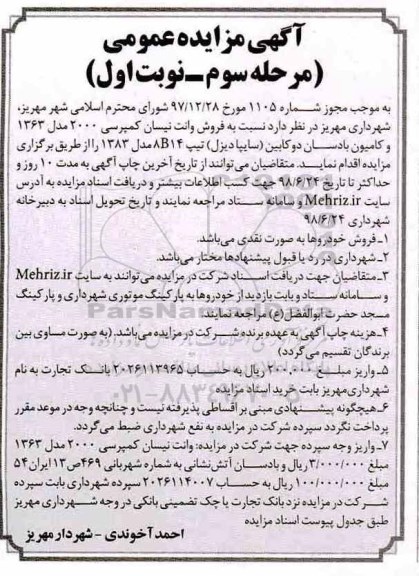 آگهی مزایده عمومی
(مرحله سوم ـ نوبت اول)
به موجب مجوز شماره ۱۱۰۵ مورخ ۹۷/۱۲/۲۸ شورای محترم اسلامی شهر مهریز،
شهرداری مهریز در نظر دارد نسبت به فروش وانت نیسان کمپرسی ۲۰۰۰ مدل ۱۳۶۳
و کامیون بادسان دوکابین (سایپا دیزل) تیپ ۸B۱۴ مدل ۱۳۸۳ را از طریق برگزاری
مزایده اقدام نماید. متقاضیان می‌توانند از تاریخ آخرین چاپ آگهی به مدت ۱۰ روز و
حداکثر تا تاریخ ۹۸/۶/۲۴ جهت کسب اطلاعات بیشتر و دریافت اسناد مزایده به آدرس
سایت Mehriz.ir و سامانه ستاد مراجعه نمایند و تاریخ تحویل اسناد به دبیرخانه
شهرداری ۹۸/۶/۲۴
۱ـ فروش خودروها به صورت نقدی می‌باشد.
۲ـ شهرداری در رد یا قبول پیشنهادها مختار می‌باشد.
۳ـ متقاضیان جهت دریافت اسناد شرکت در مزایده می‌توانند به سایت Mehriz.ir
و سامانه ستاد و بابت بازدید از خودروها به پارکینگ موتوری شهرداری و پارکینگ
مسجد حضرت ابوالفضل (ع) مراجعه نمایند.
۴ـ هزینه چاپ آگهی به عهده برنده شرکت در مزایده می‌باشد. (به صورت مساوی بین
برندگان تقسیم می‌گردد)
۵ـ واریز مبلغ ۲۰۰.۰۰۰ ریال به حساب ۲۰۲۶۱۱۳۹۶۵ بانک تجارت به نام
شهرداری مهریز بابت خرید اسناد مزایده
۶ـ هیچگونه پیشنهادی مبنی بر اقساطی پذیرفته نیست و چنانچه وجه در موعد مقرر
پرداخت نگردد سپرده شرکت در مزایده به نفع شهرداری ضبط می‌گردد.
۷ـ واریز وجه سپرده جهت شرکت در مزایده: وانت نیسان کمپرسی ۲۰۰۰ مدل ۱۳۶۳
مبلغ ۳/۰۰۰/۰۰۰ ریال و بادسان آتش‌نشانی به شماره شهربانی ۴۶۹ ص ۱۳ ایران ۵۴
مبلغ ۱۰۰/۰۰۰/۰۰۰ ریال به حساب ۲۰۲۶۱۱۴۰۰۷ سپرده شهرداری بابت سپرده
شرکت در مزایده نزد بانک تجارت یا چک تضمینی بانکی در وجه شهرداری مهریز
طبق جدول پیوست اسناد مزایده
احمد آخوندی - شهردار مهریز